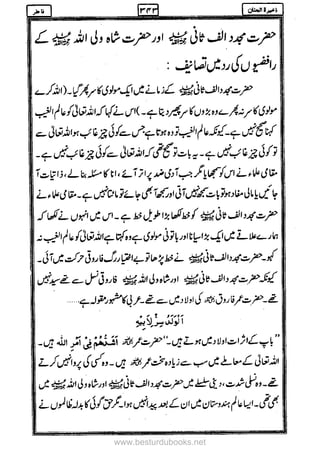 ذخیرۃ الجنان ۳۴۳ فاطر
حضرت مجدد الف ثانی ﷫ اور حضرت شاہ ولی اللہ ﷫ کے
رافضیوں کی رد میں تصانیف :
حضرت مجدد الف ثانی ﷫ کے زمانے میں ایک مولوی کا سر پھر گیا۔ (اللہ کرے
مولوی کا سر نہ پھرے وہ بڑوں کا سر پھیر دیتا ہے۔) اس نے کہا کہ اللہ تعالیٰ کو عالم الغیب
کہنا صحیح نہیں ہے۔ کیونکہ عالم الغیب تو وہ ہوتا ہے جس سے کوئی چیز غائب ہو اللہ تعالیٰ سے
تو کوئی چیز غائب نہیں ہے۔ یہ بات تو صحیح تھی کہ اللہ تعالیٰ سے کوئی چیز غائب نہیں ہے۔
مقامی علماء نے اس کو سمجھایا مگر جب آدمی ضد پر اتر آئے، انا کا مسئلہ بنا لے، ذاتیات آ
جائیں یا مالی مفاد ہو تو بات سمجھ نہیں آتی اور سمجھ آ بھی جائے تو مانتا کوئی نہیں ہے۔ مقامی علماء نے
حضرت مجدد الف ثانی ﷫ کو خط لکھا بڑا طویل خط ہے۔ اس میں انہوں نے لکھا کہ
ہمارے علاقے میں ایک بڑا لسانا اور باتونی مولوی ہے وہ کہتا ہے اللہ تعالیٰ کو عالم الغیب نہ
کہو۔ حضرت مجدد الف ثانی ﷫ نے خط پڑھا تو بے اختیار رگ فاروقی حرکت میں آئی۔
کیونکہ حضرت مجدد الف ثانی ﷫ اور شاہ ولی اللہ ﷫ فاروقی نسل سے تھے سید نہیں
تھے۔ حضرت عمر فاروق ﷜ کی اولاد میں سے تھے۔ عربی کا مشہور مقولہ ہے.....
اَلْوَلَدُ سِرٌّ لِّاَبِيْهِ
"باپ کے اثرات اولاد میں ہوتے ہیں۔" حضرت عمر ﷜ اَشَدُّهُمْ فِیْ اَمْرِ اللّٰهِ ہیں۔
اللہ تعالیٰ کے معاملے میں سب سے زیادہ سخت عمر ﷜ ہیں۔ وہ کسی کی پروا نہیں کرتے
تھے۔ وہ نسلی شدت، دینی سلسلے میں حضرت مجدد الف ثانی ﷫ اور شاہ ولی اللہ ﷫ میں
بھی تھی۔ ایسا عالم ہندوستان میں ان کے بعد پیدا نہیں ہوا۔ مگر حق گوئی کا بدلہ ظالموں نے
www.besturdubooks.net